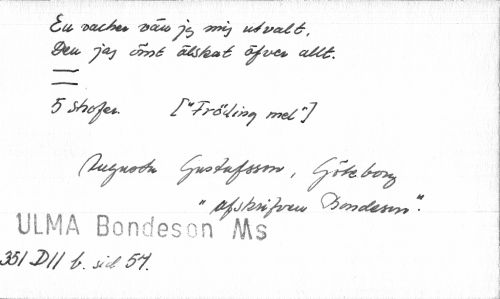 En vacker vän jg mig utvalt,
Den jag ömt älskat öfver allt.
5 strofer. ["Fröding mel"]
Augusta Gustafsson, Göteborg
"afskrifven Bondeson".
ULMA Bondeson Ms
351 D11 b. sid 57.